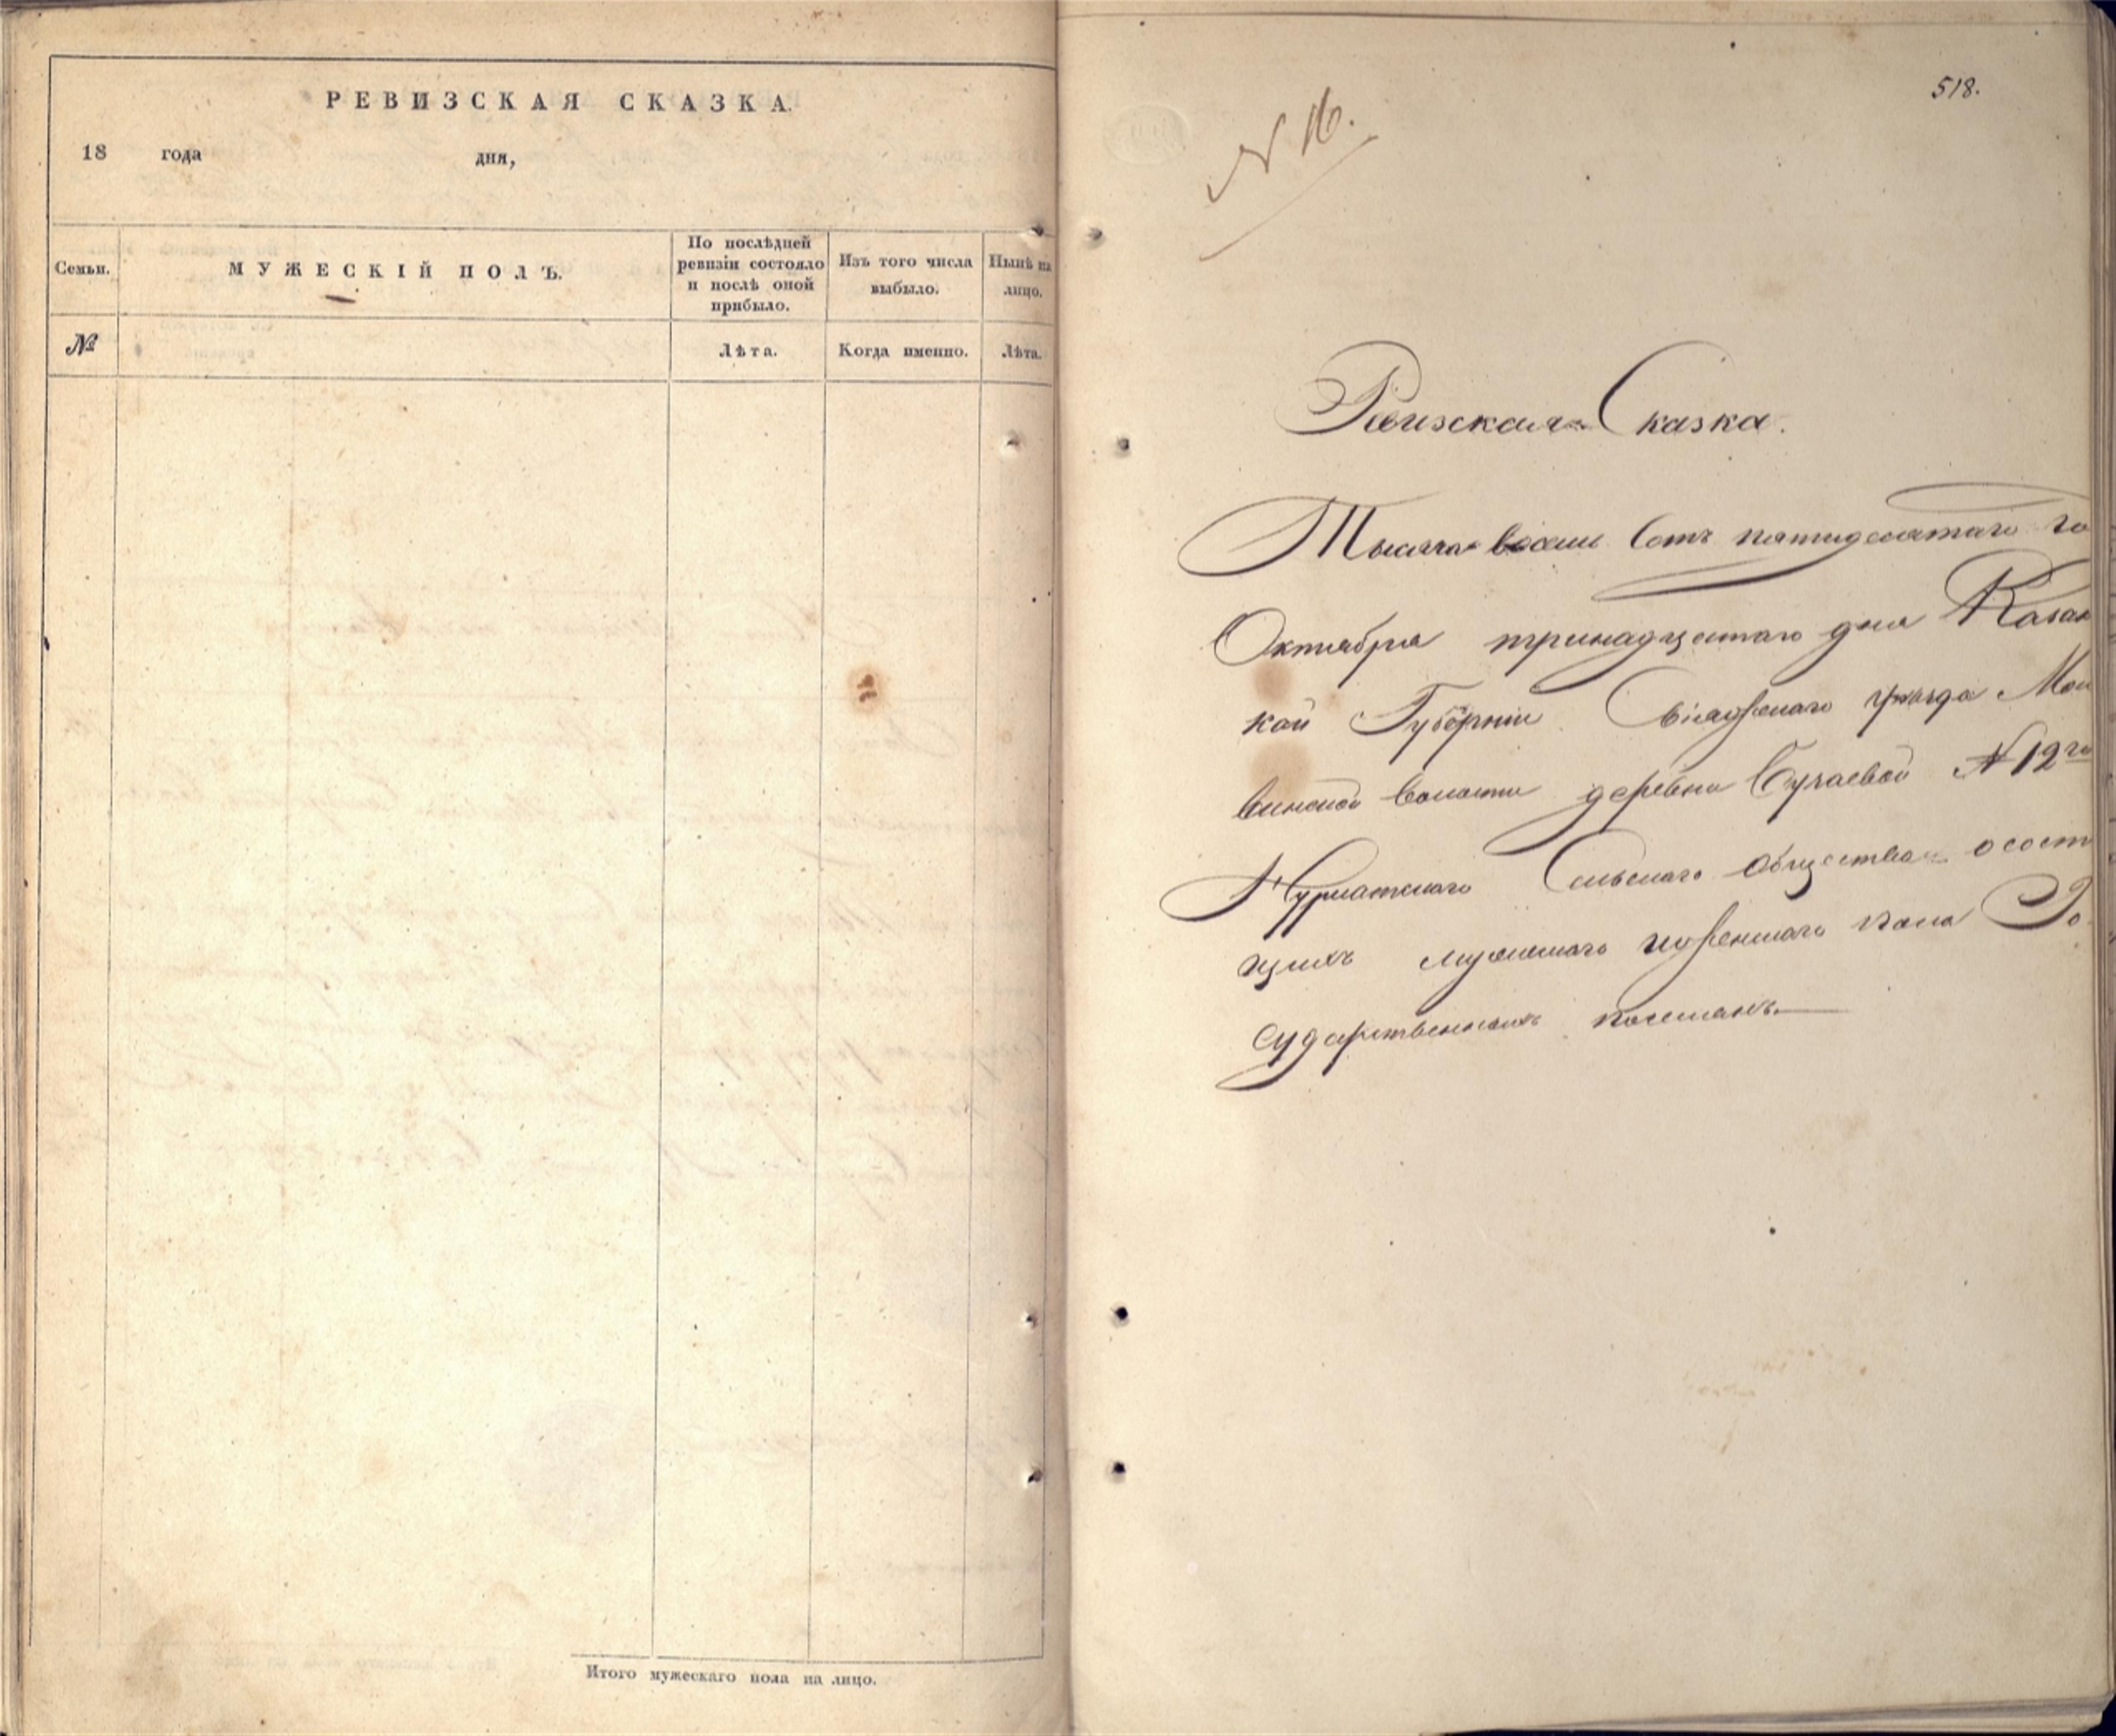 РЕВИЗСКАЯ СКАЗКА.
18 года дня,
Семьи.
МУЖЕСКІЙ ПОЛЪ.
По послѣдней
ревизіи состояло
и послѣ оной
прибыло.
Изъ того числа
выбыло.
Нынѣ на
лицо.
№
Лѣта.
Когда именно.
Лѣта.
Итого мужескаго пола на лицо.
518.
N 16.
Ревизская Сказка.
Тысяча восемь Сотъ пятидесятаго го
Октября тринадцатаго дня Казан
кой Губерніи Свіяжскаго уѣзда
винской волости деревни N 12го
Нурлатскаго Сельскаго общества о сост
щихъ мужескаго пола Го
сударственныхъ